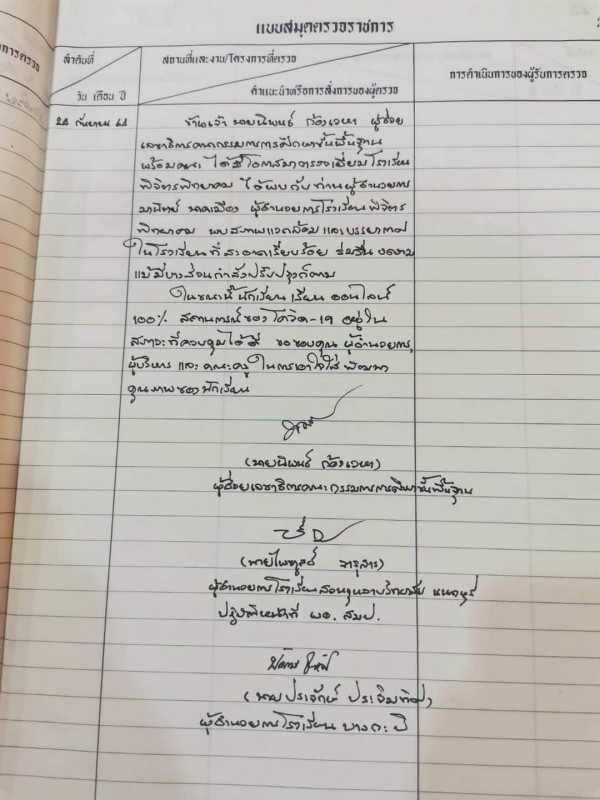 แบบสมุดตรวจราชการ
ลำดับที่
วัน เดือน ปี
สถานที่และงาน/โครงการที่ตรวจ
คำแนะนำหรือการสั่งการของผู้ตรวจ
การดำเนินการของผู้รับการตรวจ
24 กันยายน 64
ข้าพเจ้า นายนิพนธ์ ก้องเวหา ผู้ช่วย
เลขาธิการคณะกรรมการการศึกษาขั้นพื้นฐาน
พร้อมคณะ ได้มีโอกาสมาตรวจเยี่ยมโรงเรียน
พิจิตรพิทยาคม ได้พบกับท่านผู้อำนวยการ
มานิตย์ นาคเมือง ผู้อำนวยการโรงเรียนพิจิตร
พิทยาคม พบสภาพแวดล้อม และบรรยากาศ
ในโรงเรียนที่สะอาดเรียบร้อย ร่มรื่น งดงาม
แม้มีบางส่วนกำลังปรับปรุงก็ตาม
ในขณะนี้ นักเรียน เรียน ออนไลน์
100% สถานการณ์ของโควิด-19 อยู่ใน
สภาวะที่ควบคุมได้ดี ขอขอบคุณ ผู้อำนวยการ
ผู้บริหาร และ คณะครู ในการเอาใจใส่ พัฒนา
คุณภาพของนักเรียน
(นายนิพนธ์ ก้องเวหา)
ผู้ช่วยเลขาธิการคณะกรรมการการศึกษาขั้นพื้นฐาน
(นายไพฑูรย์ จารุสาร)
ผู้อำนวยการโรงเรียนสวนกุหลาบวิทยาลัย นนทบุรี
ปฏิบัติหน้าที่ ผอ. สมป.
(นาย ประจักษ์ ประจิมทิศ)
ผู้อำนวยการโรงเรียน บางกะปิ